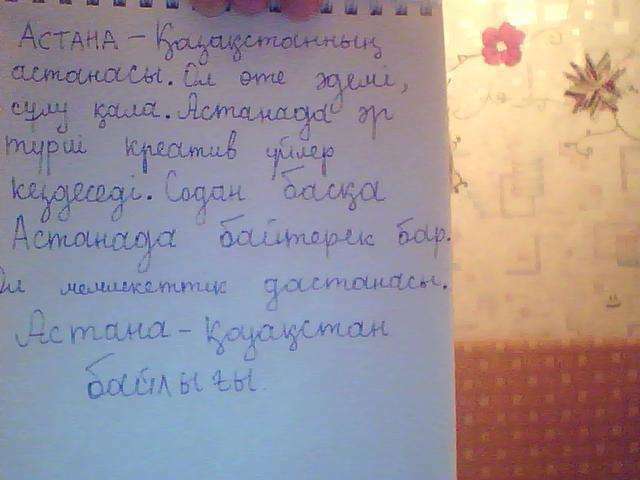 Астана – Қазақстанның
астанасы. Ол өте әдемі,
сұлу қала. Астанада әр
түрлі креатив үйлер
кездеседі. Содан басқа
Астанада байтерек бар.
Ол мемлекеттік дастанасы.
Астана – Қазақстан
байлығы.